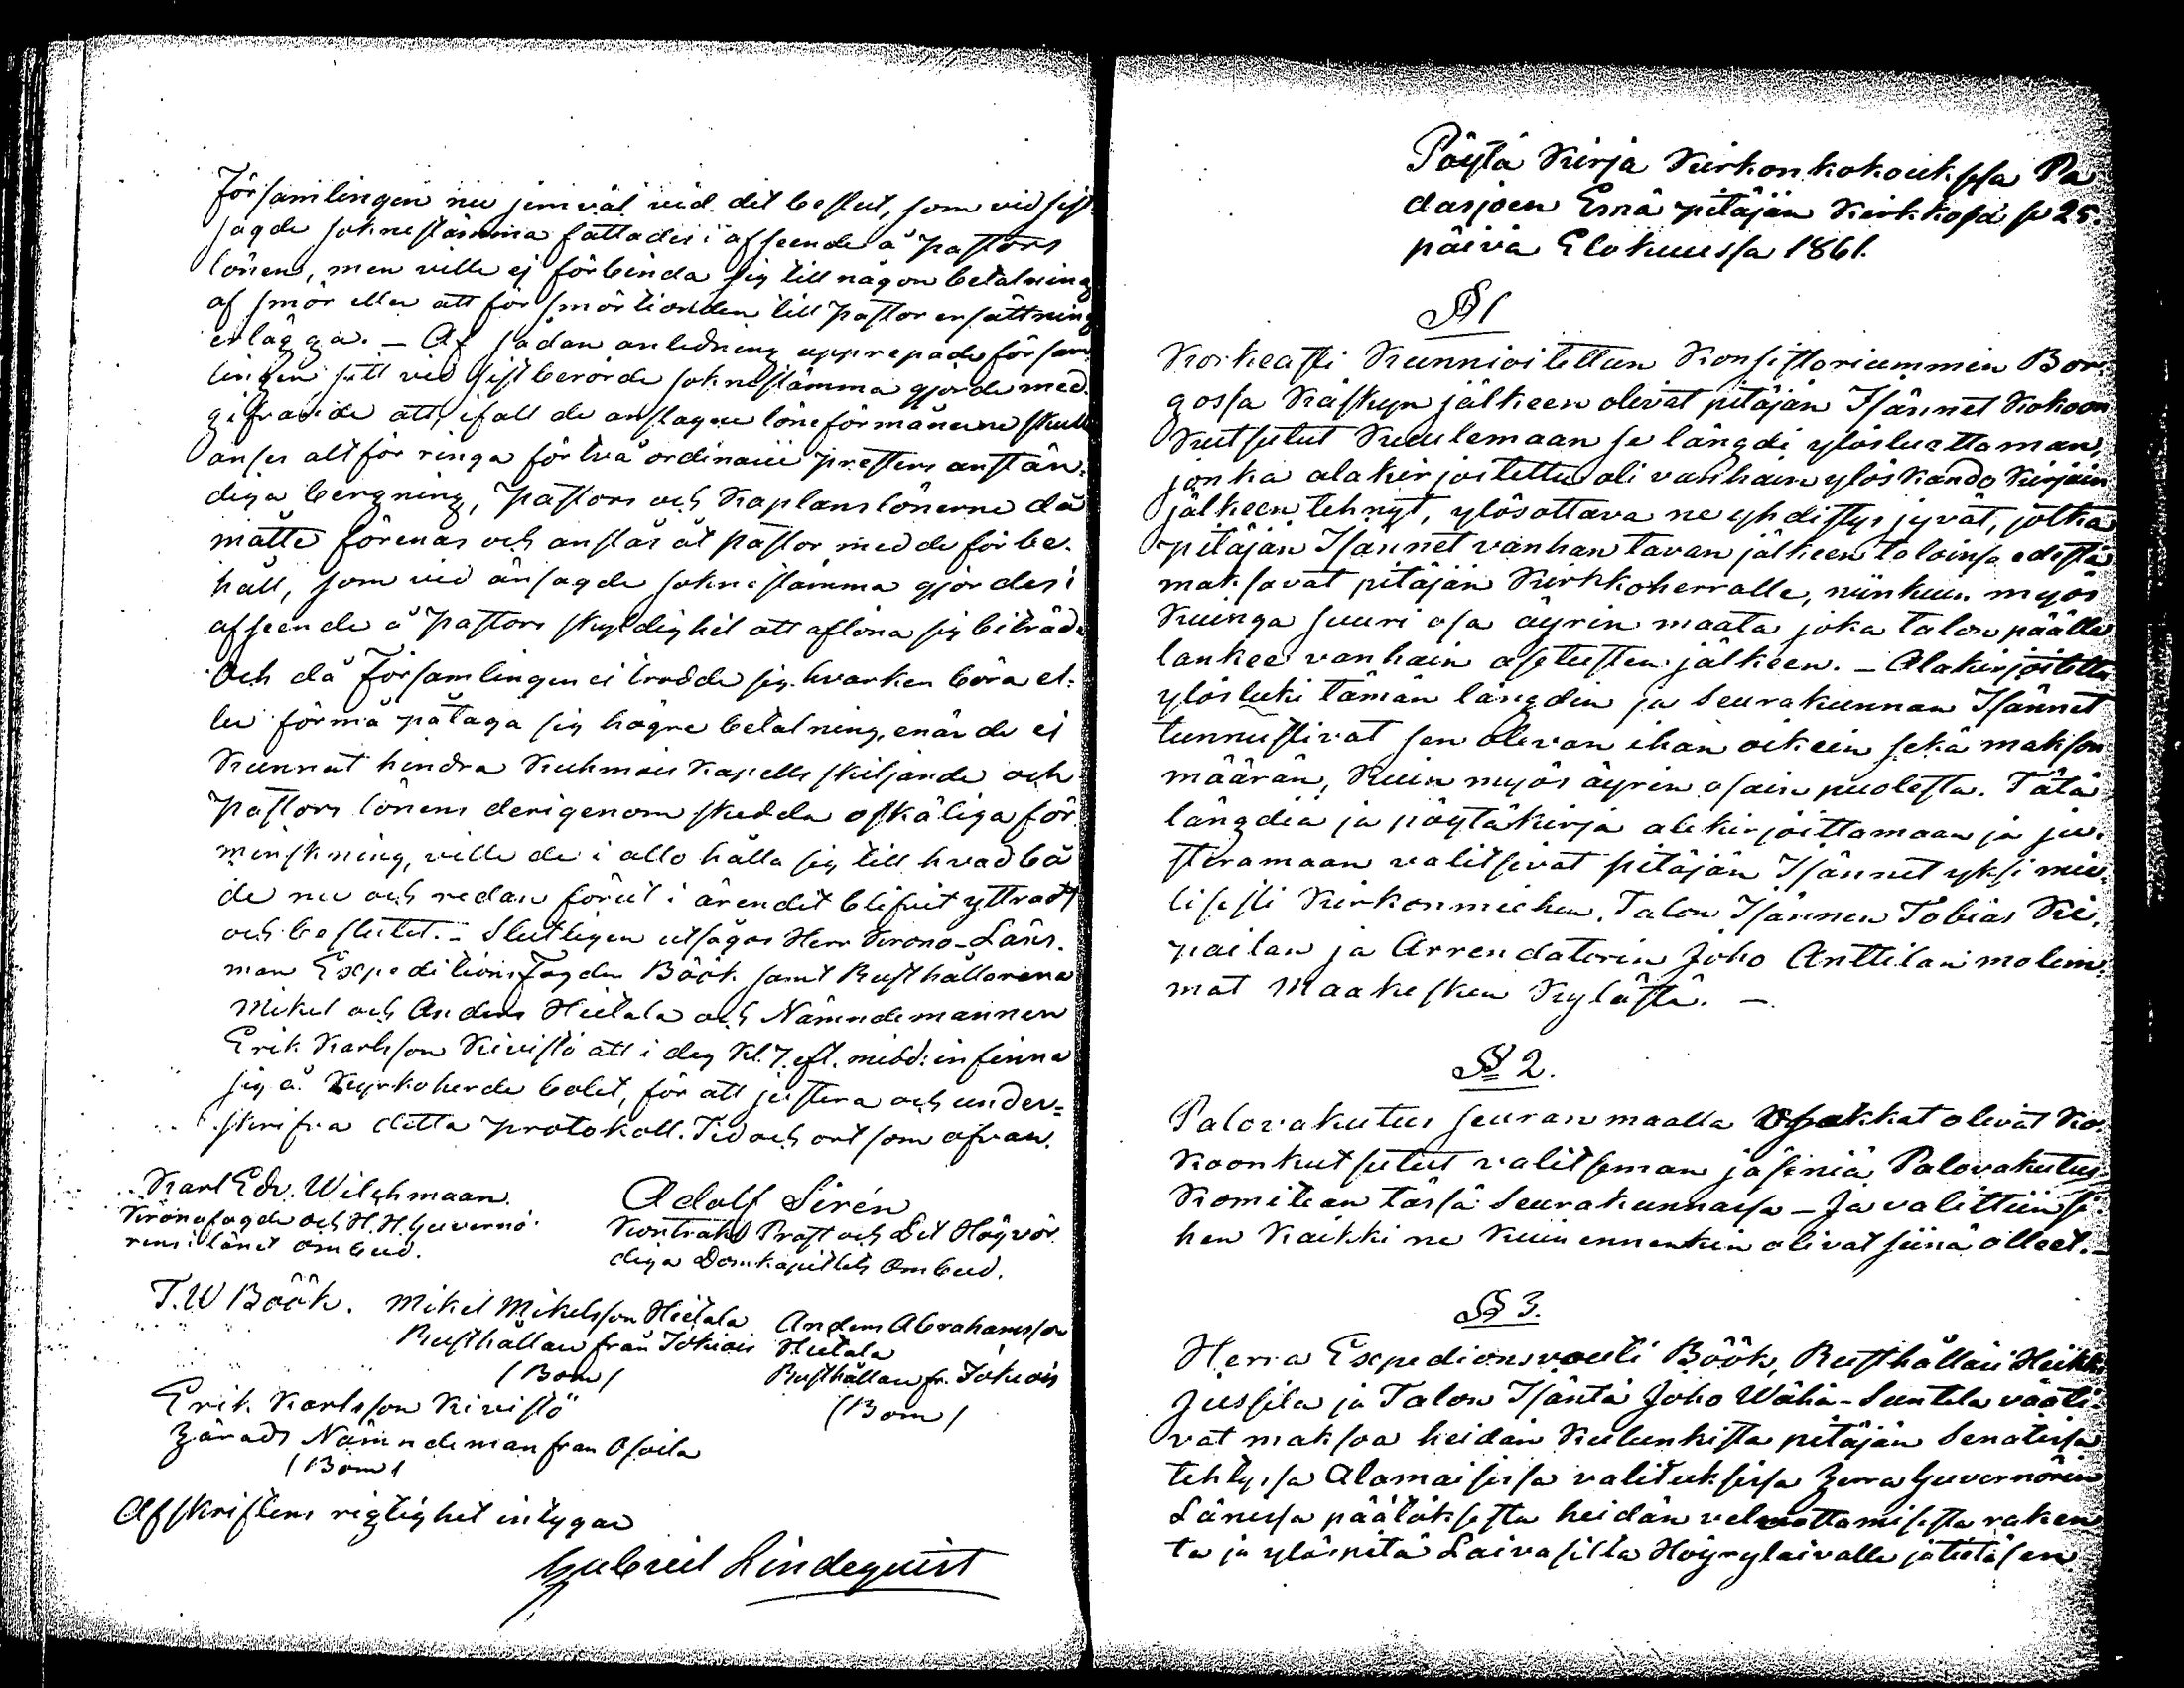 Församlingen nu jemväl vid det beslut, som vid sist
sagde sokne stämma fattades i afseende å Pastors
lönen, men ville ej förbinda sig till någon betalning
af smör eller att för smörtionden till Pastor ersättning
erlägga. – Af sådan anledning upprepade försam-
lingen sitt vid sist berörde soknestämma gjorde med-
gifvande att, ifall de anslagne löneförmånerne skulle
anses alltför ringa för två ordinarie presters anstän-
diga bergning, Pastors och Kaplans lönerne då
måtte förenas och anslås åt Pastor med de förbe-
håll, som vid ansagde soknestämma gjordes i
afseende å Pastors skyldighet att aflöna sig biträde
Och då Församlingen ei trodde sig hvarken böra el-
ler förmå påtaga sig högre betalning, enär de ej
kunnat hindra Kuhmois Kapells skiljande och
Pastors lönens derigenom skedda oskäliga för-
minskning, ville de i allo hålla sig till hvad bå
de nu och redan förut i ärendet blifvit yttradt
och beslutet. – Slutligen utsågos Herr Krono-Läns-
man Expeditions Fogden Böök samt Rusthållarena
Mikel och Anders Hietala och Nämndemannen
Erik Karlsson Kivistö att i dag Kl. 7. eft. midd: infinna
sig å Kyrkoherde bolet, för att justera och under-
skrifva detta protokoll. Tid och ort som ofvan.
Karl Edv. Wilchmaan. Adolf Sirén
Kronofogde och H. H. Guvernö- Kontrakts Prost och Det Högvör-
rens i länet ombud. diga Domkapitlets Ombud.
T. W Böök. Mikel Mikelsson Hietala Anders Abrahamsson
Rusthållare från Jokiois Hietala
(Bom) Rusthållare fr. Jokiois
Erik Karlsson Kivistö (Bom)
Härads Nämndeman från Osoila
(Bom)
Afskriftens rigtighet intygar
Gabriel Lindequist
Pöytä Kirja Kirkonkokouksesa Pa
dasjoen Emä pitäjän Kirkkosa se 25.
päivä Elokuussa 1861.
§ 1
Korkeasti Kunnioitettun Konsistoriummin Bor-
gossa Käskyn jälkeen olivat pitäjän Isännet Kokoon
Kutsutut Kuulemaan se längdi ylösluettaman,
jonka alakirjoitettu oli vanhain ylöskando Kirjain
jälkeen tehnyt, ylösottava ne yhdistys jyvät, jotka
pitäjän Isännet vanhan tavan jälkeen taloinsa edestä
maksavat pitäjän Kirkkoherralle, niinkuin myös
Kuinga suuri osa äyrin maata joka talon päälle
lankee vanhain asetusten jälkeen. – Alakirjoitettu
ylösluki tämän längdin ja Seurakunnan Isännet
tunnustivat sen olevan ihan oikein sekä makson
määrän, Kuin myös äyrin osain puolesta. Tätä
längdiä ja pöytäkirja alekirjoittamaan ja ju-
steramaan valitsivat pitäjän Isännet yksi mie-
lisesti Kirkonmiehen, Talon Isännen Tobias Ki-
pailan ja Arrendatorin Joho Anttilan molem-
mat Maakesken Kylästä. –
§ 2.
Palovakutus seuran maalla Osakkat olivat Ko-
Koonkutsutut valitseman jäseniä Palovakutus
Komitean tässä Seurakunnassa – Ja valittiin sii-
hen Kaikki ne Kuin ennenkin olivat siinä olleet. –
§ 3.
Herra Expedionsvouti Böök, Rusthållari Heikki
Jussila ja Talon Isäntä Joho Wähä-Seutela vaati-
vat maksoa heidän Kulunkista pitäjän Senatissa
tehtyssa Alamaisessa valituksessa Herra Guvernörin
Länissa päätöksesta heidän velvottamisesta raken
ta ja ylöspitä Laivasilta Höyrylaivalle ja tietä sen